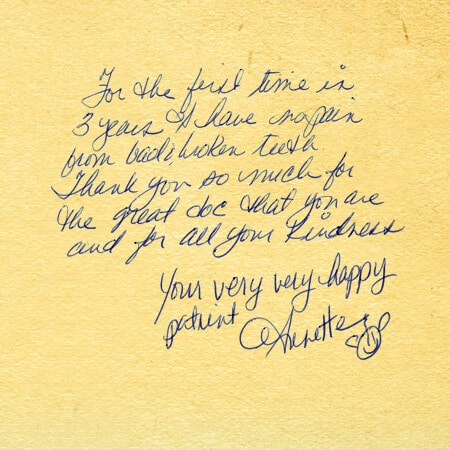 For the first time in
3 years I have no pain
from bad & broken teeth.
Thank you so much for
the great doc that you are
and for all your kindness
Your very very happy
patient Annette